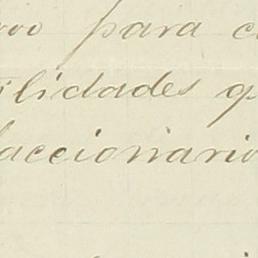 para
ilidades q
accionario